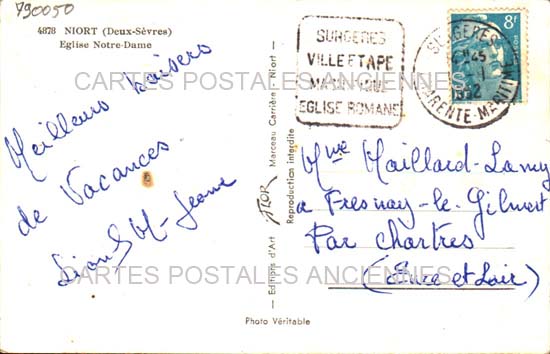 790050
4878 NIORT (Deux-Sèvres)
Eglise Notre-Dame
Meilleurs baisers
de Vacances
Lionel M-Jeanne
Photo Véritable
Editions d'Art JLOR Marceau Carrière - Niort
Reproduction interdite
SURGERES
VILLE ETAPE
EGLISE ROMANE
SURGERES
45
1952
CHARENTE-MARITIME
8f
Mme Maillard-Lamy
a Fresnay-le-Gilmert
Par Chartres
(Eure et Loir)
CARTES POSTALES ANCIENNES
CARTES POSTALES ANCIENNES